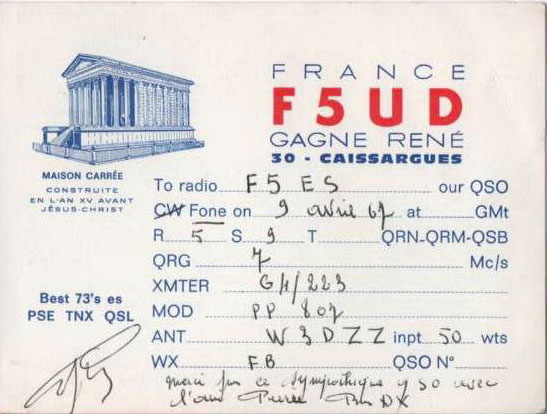 FRANCE
F5UD
GAGNE RENÉ
30 - CAISSARGUES
MAISON CARRÉE
CONSTRUITE
EN L'AN XV AVANT
JÉSUS-CHRIST
To radio F5ES our QSO
CW Fone on 9 avril 67 at GMt
R 5 S 9 T QRN-QRM-QSB
QRG 7 Mc/s
XMTER G4/223
Best 73's es
PSE TNX QSL
MOD PP 807
ANT W3DZZ inpt 50 wts
WX FB QSO N°
merci pour ce sympathique QSO avec
l'ami Pierre Bon DX